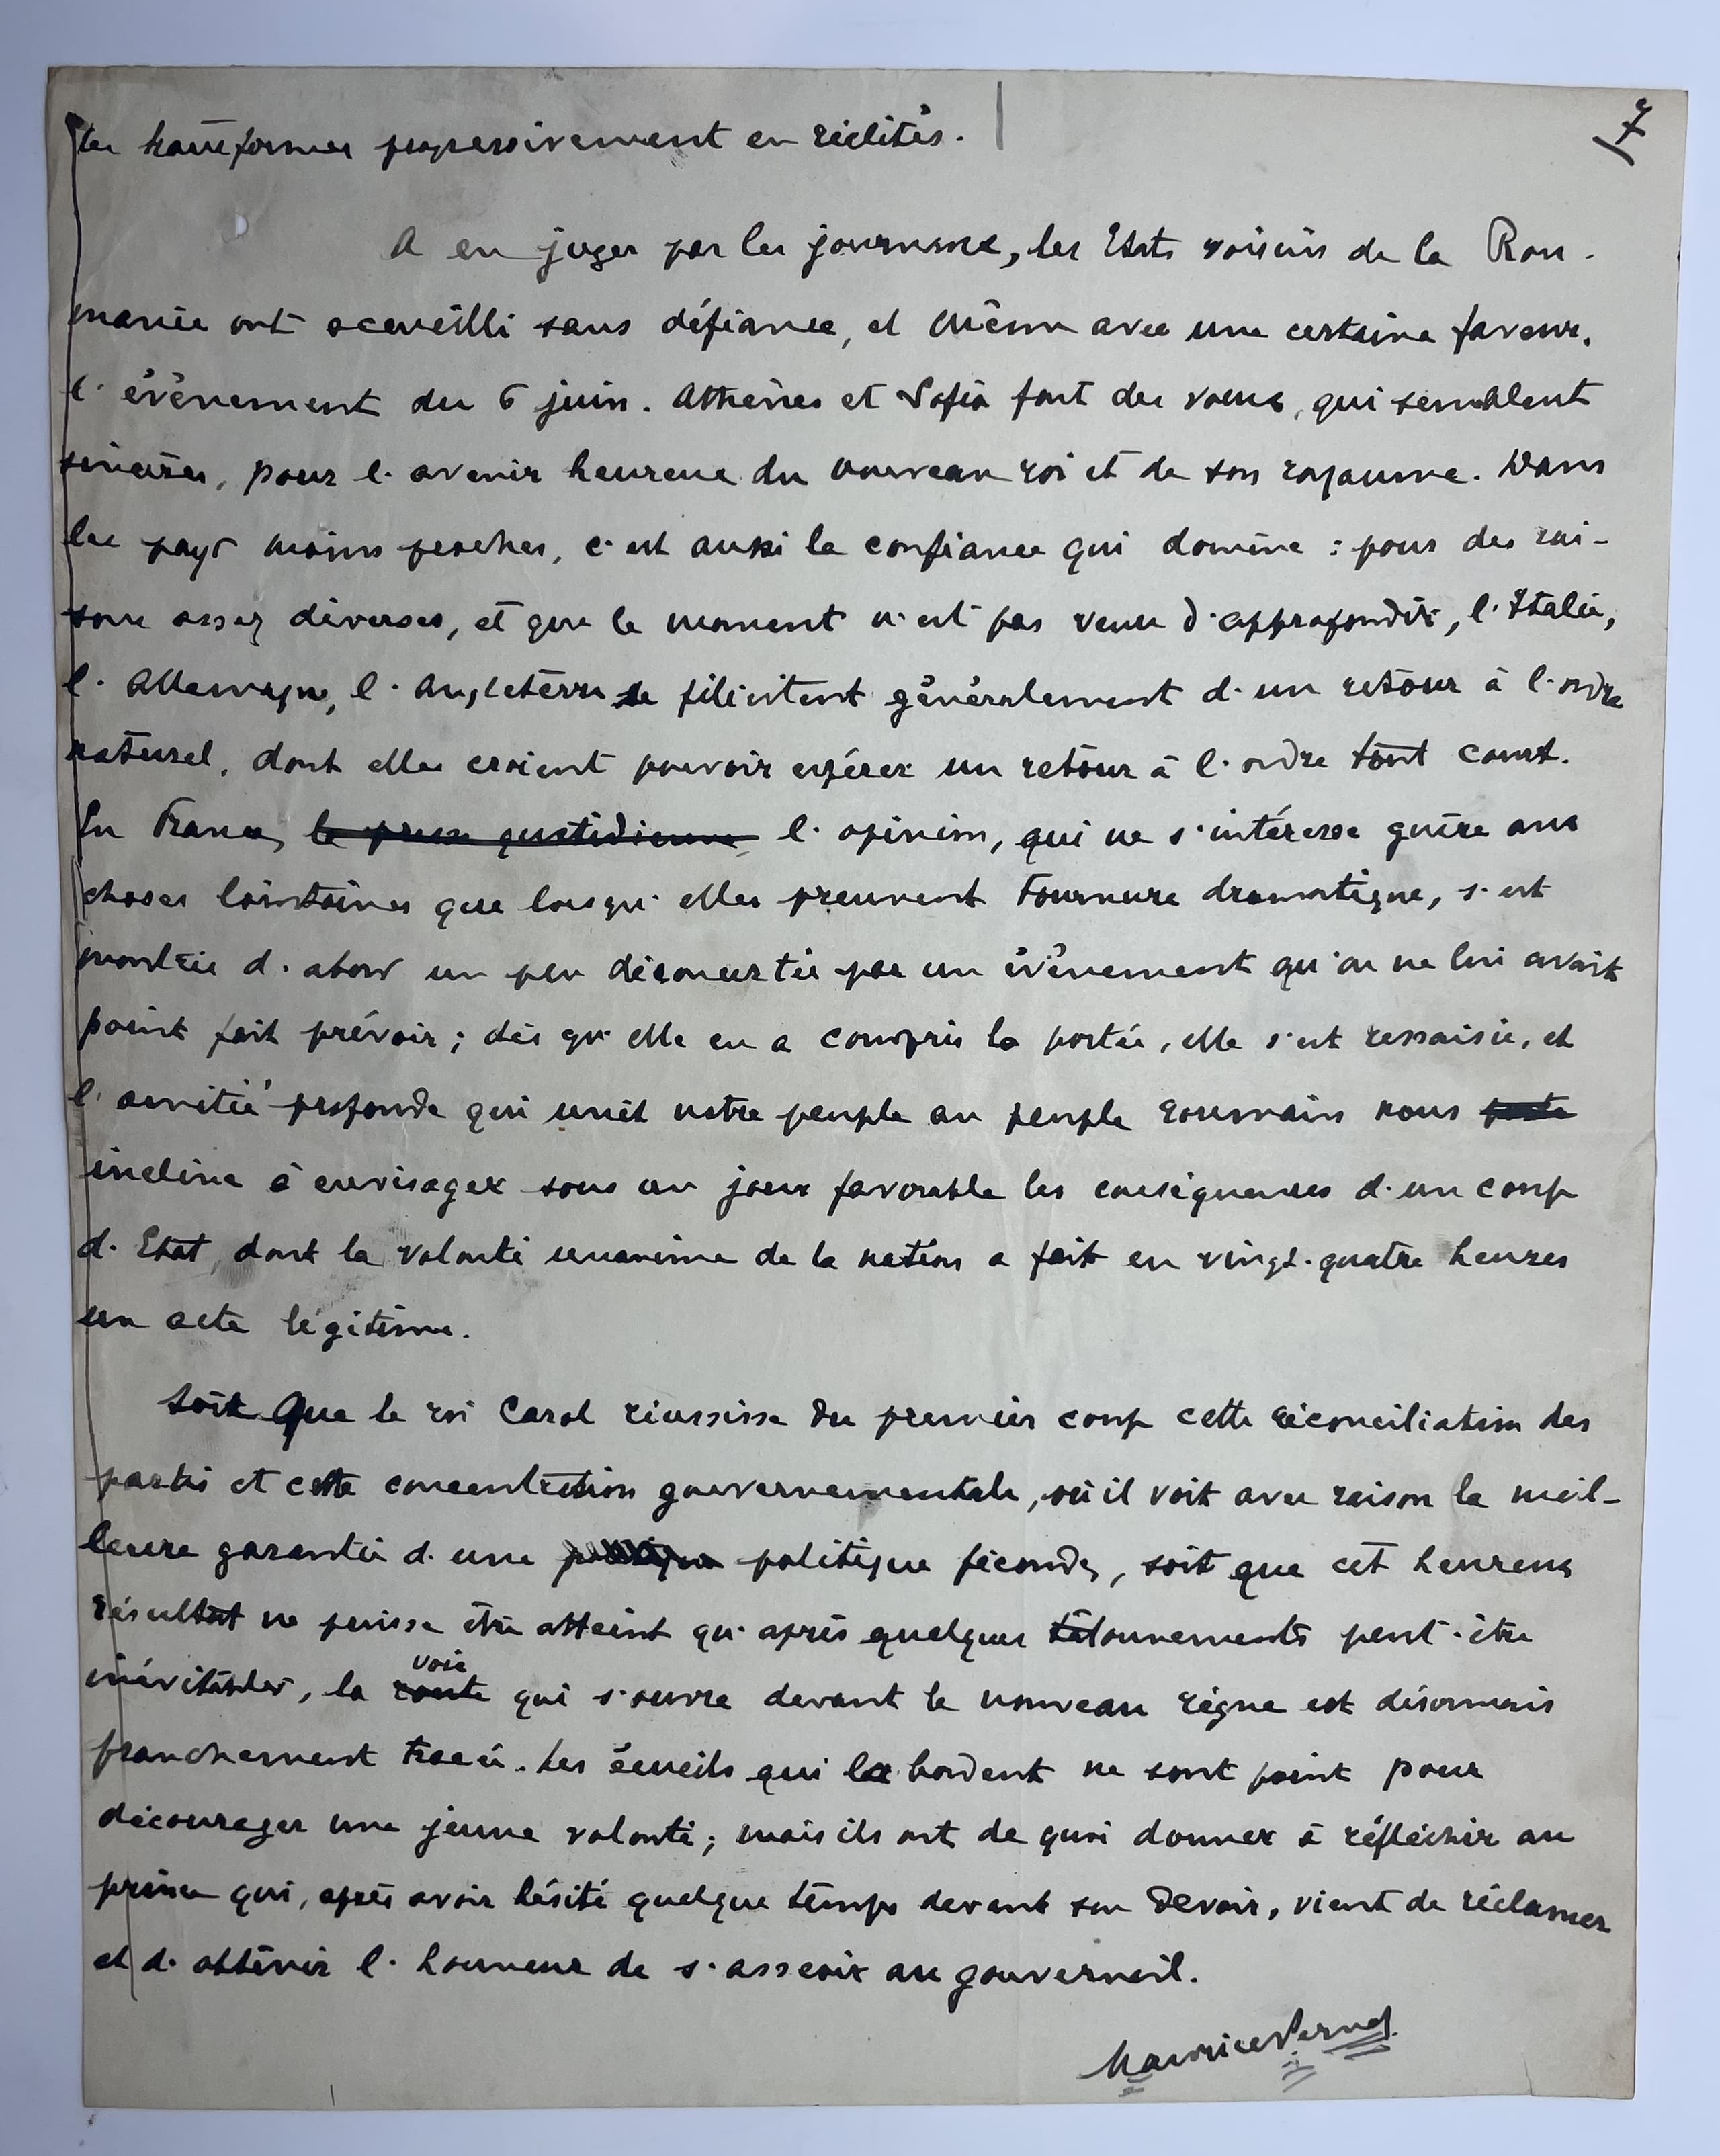 les transformer progressivement en réalités.
7
A en juger par les journaux, les Etats voisins de la Rou-
manie ont accueilli sans défiance, et même avec une certaine faveur,
l'évènement du 6 juin. Athènes et Sofia font des voeux, qui semblent
sincères, pour l'avenir heureux du nouveau roi et de son royaume. Dans
les pays moins proches, c'est aussi la confiance qui domine : pour des rai-
sons assez diverses, et que le moment n'est pas venu d'approfondir, l'Italie,
l'Allemagne, l'Angleterre se félicitent généralement d'un retour à l'ordre
naturel, dont elles croient pouvoir espérer un retour à l'ordre tout court.
En France, la presse quotidienne, l'opinion, qui ne s'intéresse guère aux
choses lointaines que lorsqu'elles prennent tournure dramatique, s'est
montrée d'abord un peu déconcertée par un évènement qu'on ne lui avait
point fait prévoir ; dès qu'elle en a compris la portée, elle s'est ressaisie, et
l'amitié profonde qui unit notre peuple au peuple roumain nous porte
incline à envisager sous un jour favorable les conséquences d'un coup
d'Etat, dont la volonté unanime de la nation a fait en vingt-quatre heures
un acte légitime.
Soit que le roi Carol réussisse du premier coup cette réconciliation des
partis et cette concentration gouvernementale, où il voit avec raison la meil-
leure garantie d'une politique politique féconde, soit que cet heureux
résultat ne puisse être atteint qu'après quelques tâtonnements peut-être
inévitables, la route voie qui s'ouvre devant le nouveau règne est désormais
franchement tracée. Les écueils qui la bordent ne sont point pour
décourager une jeune volonté ; mais ils ont de quoi donner à réfléchir au
prince qui, après avoir hésité quelque temps devant son devoir, vient de réclamer
et d'obtenir l'honneur de s'asseoir au gouvernail.
Maurice Pernot